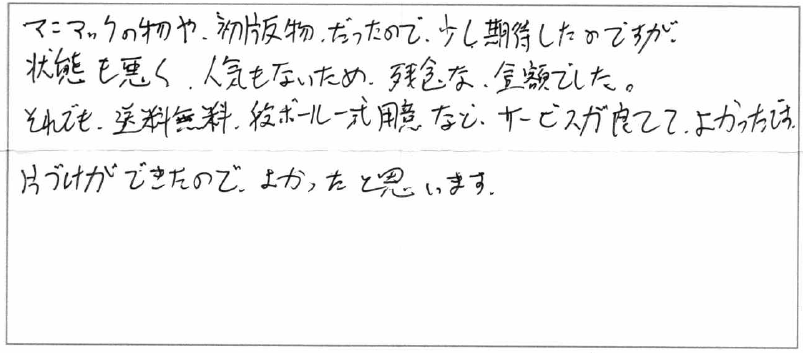 マニマックの物や、初版物、だったので、少し期待したのですが、
状態も悪く、人気もないため、残念な、金額でした。
それでも、送料無料、段ボール一式用意など、サービスが良くて、よかったです。
片づけができたので、よかったと思います。